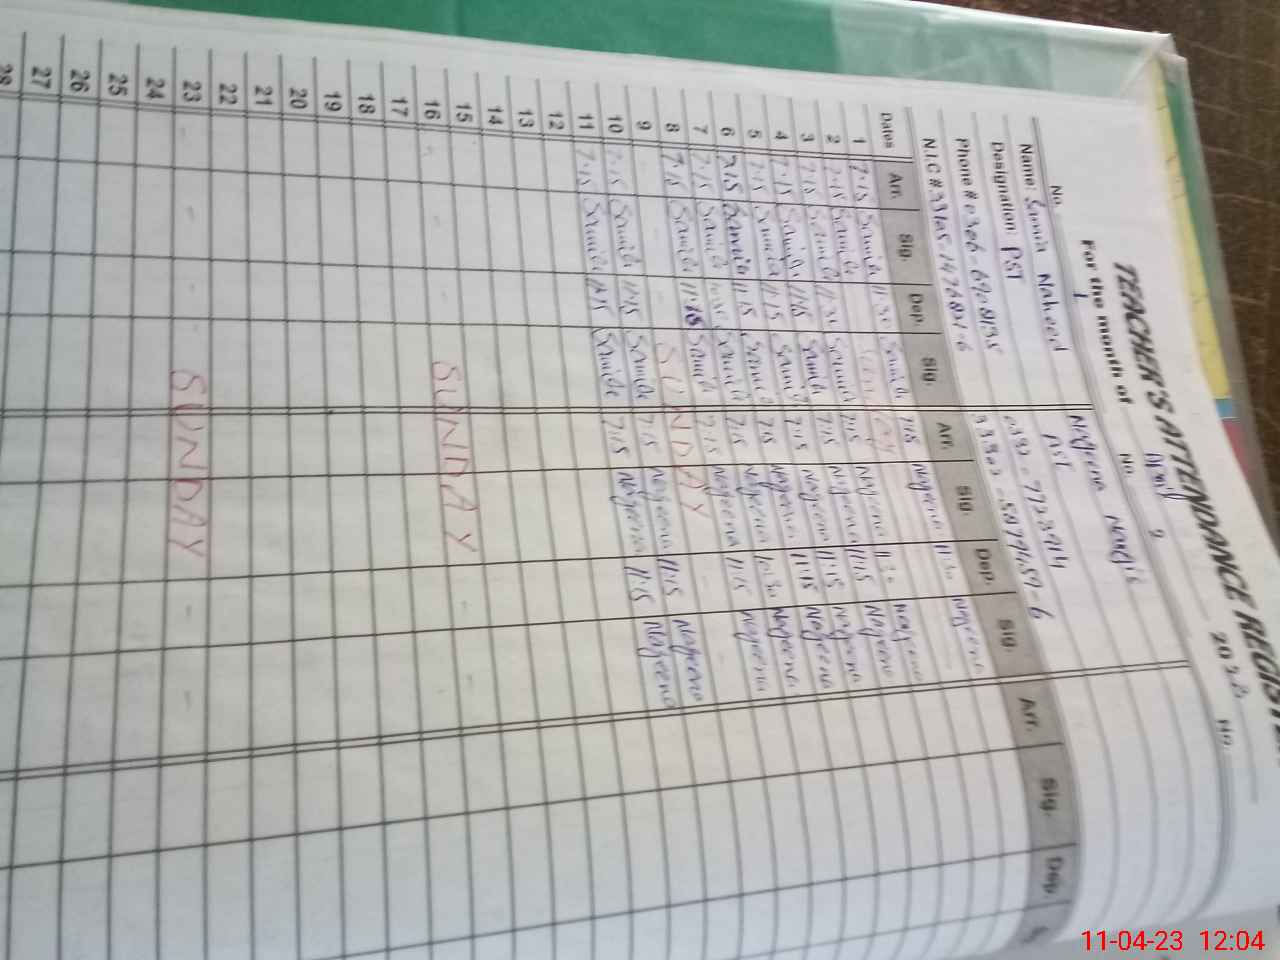 TEACHER'S ATTENDANCE REGIST
For the month of April 2023
No. 1 No. 2 No.
Name: Samia Naheed Nageena Nargis
Designation: PST PST
Phone # 0306-6908135
N.I.C #
Dates Arr. Sig. Dep. Sig. Arr. Sig. Dep. Sig. Arr. Sig. Dep.
1 7.15 Samia 11.30 Samia 7.15 Nageena 11.30 Nageena
2 SUNDAY
3 7.15 Samia 7.15 Nageena 11.30 Nageena
4 7.15 Samia 11.15 Samia 7.15 Nageena 11.15 Nageena
5 7.15 Samia 11.15 Samia 7.15 Nageena 11.15 Nageena
6 7.15 Samia 11.15 Samia 7.15 Nageena 11.15 Nageena
7 7.15 Samia Samia 7.15 Nageena 10.30 Nageena
8 7.15 Samia 11.15 Samia 7.15 Nageena 11.15 Nageena
9 SUNDAY
10 7.15 Samia 11.15 Samia 7.15 Nageena 11.15 Nageena
11 7.15 Samia 11.15 Samia 7.15 Nageena 11.15 Nageena
12
13
14
15
16 SUNDAY
17
18
19
20
21
22
23 SUNDAY
24
25
26
27
28
11-04-23 12:04